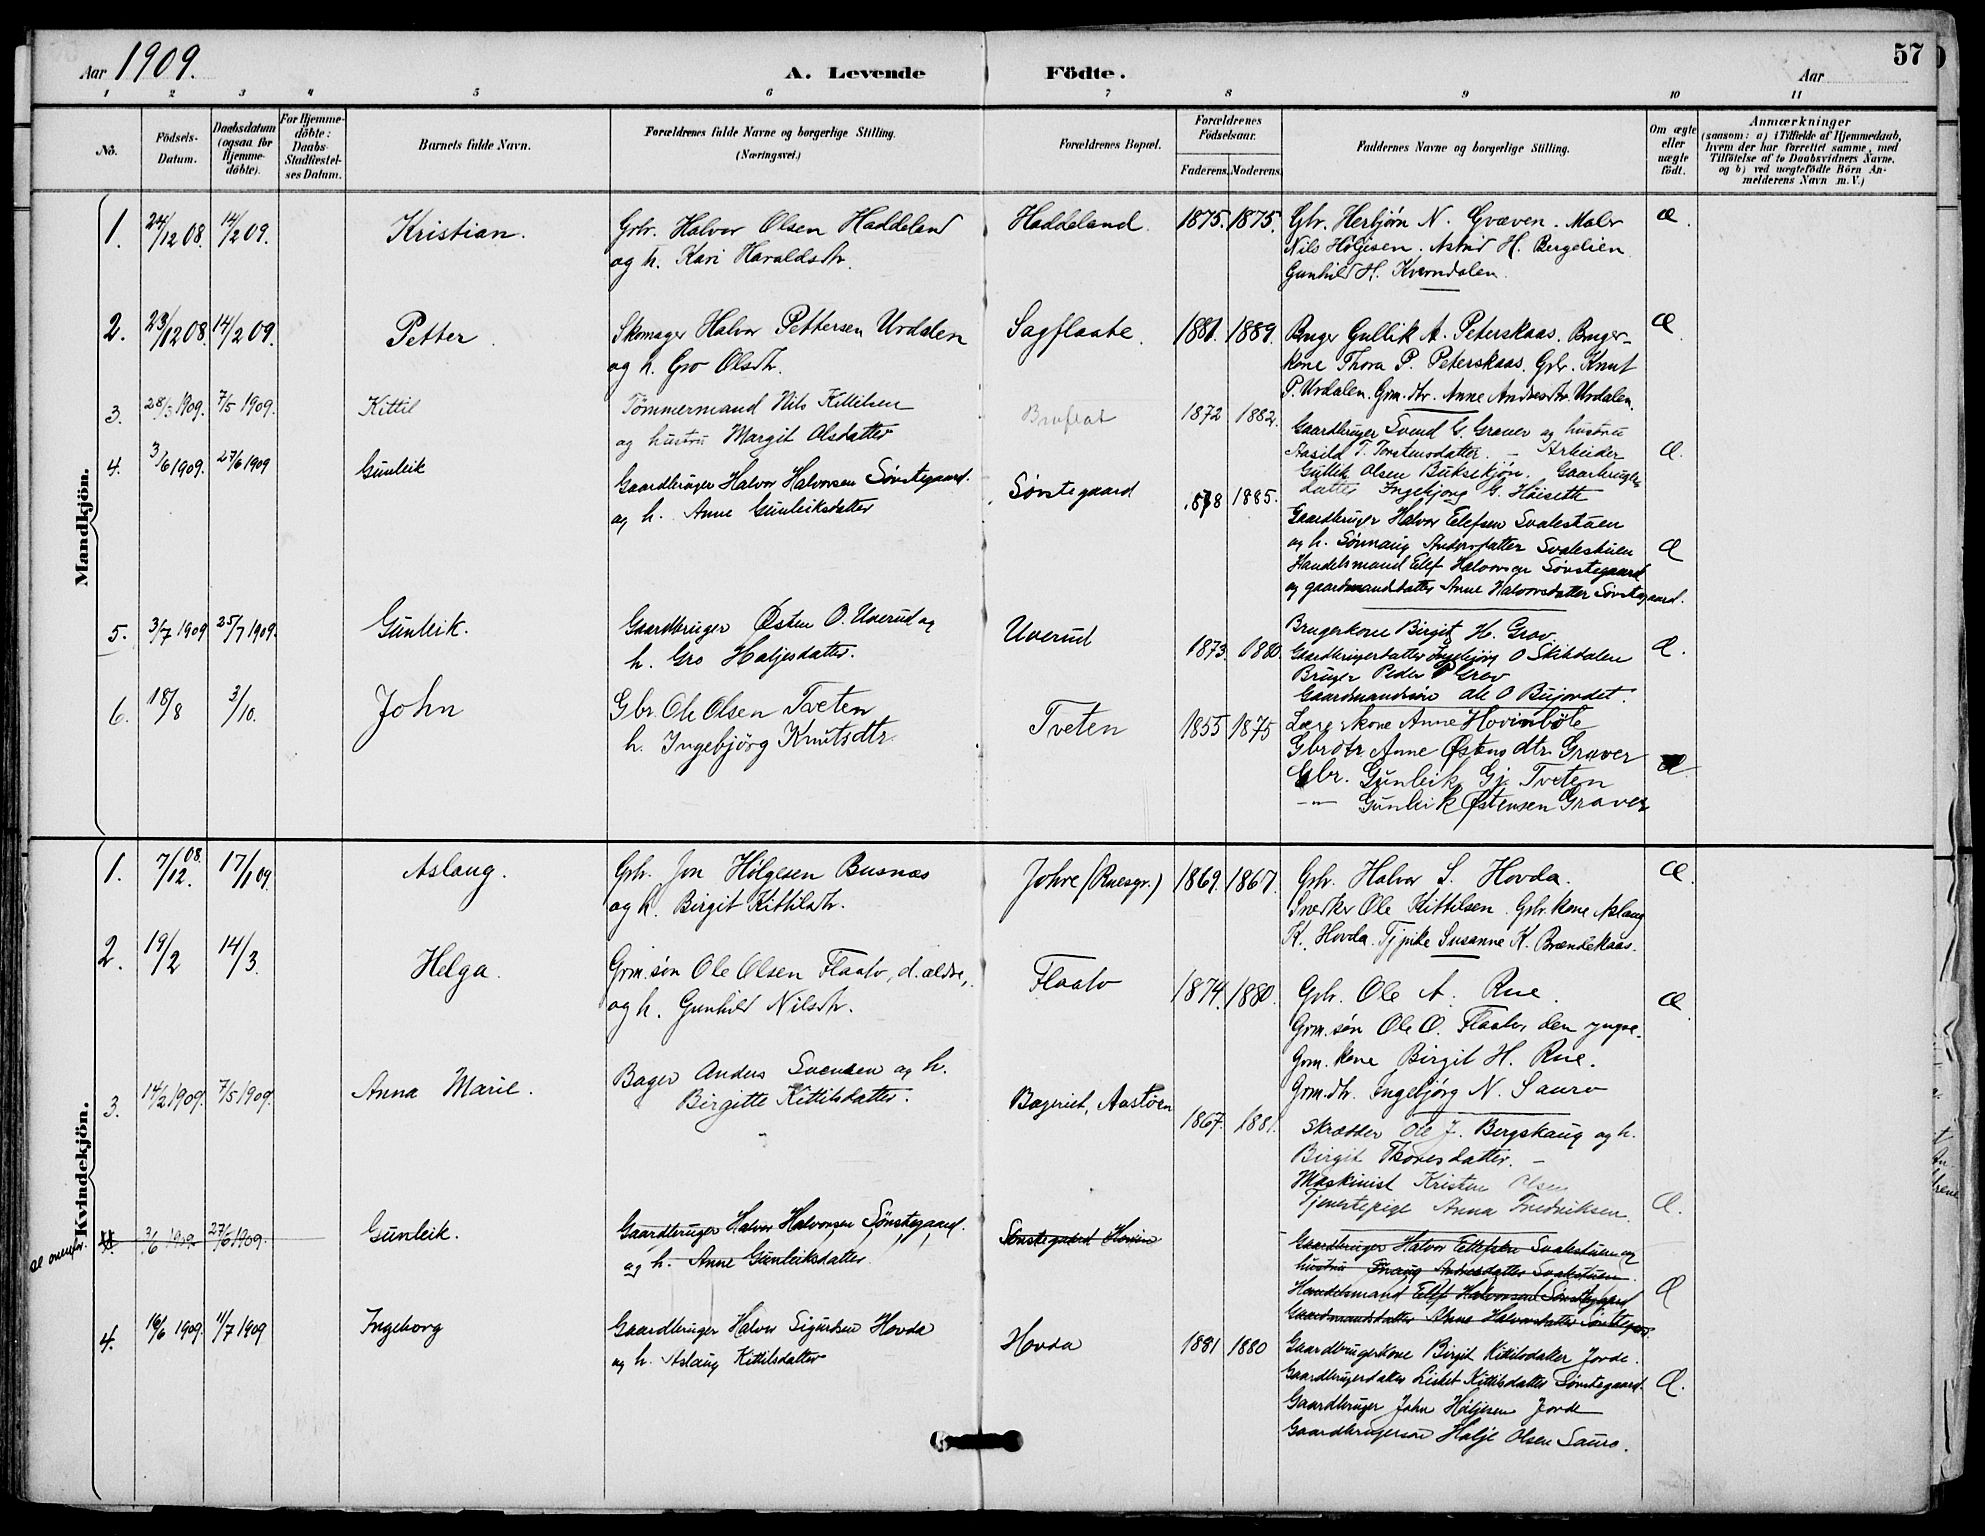 57
Aar 1909.
A. Levende Födte.
Aar
1 2 3 4 5 6 7 8 8 9 10 11
No.
Födsels-Datum.
Daabsdatum (ogsaa for Hjemme-döbte).
For Hjemme-döbte: Daabs-Stadfæstel-ses Datum.
Barnets fulde Navn.
Forældrenes fulde Navne og borgerlige Stilling.
(Næringsvei.)
Forældrenes Bopæl.
Forældrenes Födselsaar.
Faderens. Moderens.
Faddernes Navne og borgerlige Stilling.
Om ægte eller uægte födt.
Anmærkninger
(saasom: a) i Tilfælde af Hjemmedaab,
hvem der har forrettet samme, med
Tilföielse af to Daabsvidners Navne.
og b) ved uægtefödte Börn An-
melderens Navn m. V.)
Mandkjön.
1. 24/12 08. 14/2 09. Kristian. Gbr. Halvor Olsen Haddeland
og h. Kari Haraldsdtr.
Haddeland. 1875. 1875.
Gbr. Herbjørn N. Gvæven. Maler
Nils Høljesen. Astrid H. Bergelien
Gunhild H. Kverndalen.
æ.
2. 23/12 08. 14/2 09. Petter. Skomager Halvor Pettersen Urdalen
og h. Gro Olsdtr.
Sagflaate. 1881. 1889.
Bruger Gullik A. Peterskaas. Bruger-
kone Thora P. Peterskaas. Gbr. Knut
P. Urdalen. Grm.dtr. Anne Andresdtr. Urdalen.
Æ.
3. 28/3 1909. 7/5 1909. Kittil Tømmermand Nils Kittilsen
og hustru Margit Olsdatter
1872 1882.
Gaardbruger Svend G. Graver og hustru
Aasild T. Torstensdatter. – Arbeider
Gullik Olsen Buksekjøn. Gaardbruger
datter Ingebjorg G. Høiseth
Æ.
4. 3/6 1909. 27/6 1909 Gunleik Gaardbruger Halvor Halvorsen Sønstegaard.
og h. Anne Gunleiksdatter
Sønstegaard 1878 1885.
Gaardbruger Halvor Elefsen Svalestuen
og h. Sønnaug Andersdatter Svalestuen
Handelsmand Elef Halvorsen Sønstegaard
og gaardmandsdatter Anne Halvorsdatter Sønstegaard.
Æ
5. 3/7 1909 25/7 1909. Gunleik. Gaardbruger Østen O. Uverud og
h. Gro Haljesdatter.
Uverud 1873. 1880.
Brugerkone Birgit H. Grov.
Gaardbrugerdatter Ingebjørg O Skikdalen
Bruger Peder P Grov
Gaardmandssøn Ole O Bujordet.
Æ.
6. 18/8 3/10. John Gbr. Ole Olsen Tveten
h. Ingebjörg Knutsdtr.
Tveten 1855 1875
Lærerkone Anne Hovinbøle
Gbrdtr Anne Østensdtr. Graver
Gbr. Gunleik Gj. Tveten
–"– Gunleik Østensen Graver
Æ.
Kvindekjön.
1. 7/12 08. 17/1 09. Aslaug. Gbr. Jon Hølgesen Busnæs
og h. Birgit Kittilsdtr.
Johre (Ruesgr.) 1869. 1867.
Gbr. Halvor S. Hovda.
Snedker Ole Kittilsen. Gbr.kone Aslaug
K. Hovda. Tj.pike Susanne K. Brændekaas.
æ.
2. 19/2 14/3. Helga. Grm.søn Ole Olsen Flaato, d. ældre,
og h. Gunhild Nilsdtr.
Flaato 1874. 1880.
Gbr. Ole A. Rue.
Grm.søn Ole O. Flaato, den yngre.
Grm.kone Birgit H. Rue.
Grm.dtr. Ingebjørg N. Sauro
æ.
3. 14/2 1909. 7/5 1909. Anna Marie. Bager Anders Svensen og h.
Birgitte Kittilsdatter.
Bageriet, Aastøen 1867. 1881.
Skrædder Ole J. Bergskaug og h.
Birgit Thoresdatter. –
Maskinist Kristen Olsen
Tjenestepige Anna Fredriksen.
Æ.
se ovenfor.
4. 3/6 1909. 27/6 1909. Gunleik. Gaardbruger Halvor Halvorsen Sønstegaard.
og h. Anne Gunleiksdatter.
Sønstegaard Hovin
Gaardbruger Halvor Ellefsen Svalestuen og
hustru Andresdatter Svalestuen.
Handelsmand Ellef Halvorsen Sønstegaard
Gaardmandsdatter Anne Halvorsdatter Sønstegaard.
Æ
4. 16/6 1909. 11/7 1909 Ingeborg Gaardbruger Halvor Sigurdsen Hovda
og h. Aslaug Kittilsdatter
Hovda 1881 1880
Gaardbrugerkone Birgit Kittilsdatter Jorde.
Gaardbrugerdatter Lisbet Kittilsdatter Sønstegaard.
Gaardbruger John Høljesen Jorde
Gaardbrugersøn Halje Olsen Sauro.
Æ.